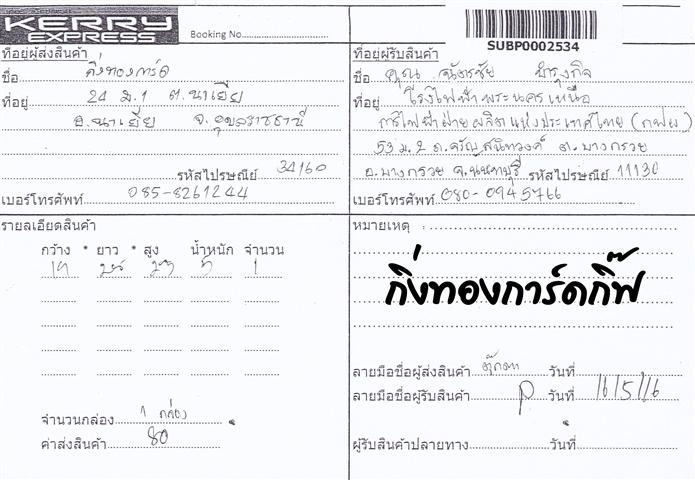 KERRY
EXPRESS
Booking No.
SUBP0002534
ที่อยู่ผู้ส่งสินค้า
ชื่อ กิ่งทองการ์ด
ที่อยู่ 24 ม.1 ต.นาเยีย
อ.นาเยีย จ.อุบลราชธานี
รหัสไปรษณีย์ 34160
เบอร์โทรศัพท์ 085-8261244
ที่อยู่ผู้รับสินค้า
ชื่อ คุณ ฉัตรชัย บำรุงกิจ
ที่อยู่ โรงไฟฟ้าพระนครเหนือ
การไฟฟ้าฝ่ายผลิตแห่งประเทศไทย (กฟผ)
53 ม.2 ถ.จรัญสนิทวงศ์ ต.บางกรวย
อ.บางกรวย จ.นนทบุรี รหัสไปรษณีย์ 11130
เบอร์โทรศัพท์ 080-0945766
รายละเอียดสินค้า
กว้าง * ยาว * สูง น้ำหนัก จำนวน
1
จำนวนกล่อง 1 กล่อง
ค่าส่งสินค้า 80
หมายเหตุ :
กิ่งทองการ์ดกิ๊ฟ
ลายมือชื่อผู้ส่งสินค้า ตุ๊กตา วันที่
ลายมือชื่อผู้รับสินค้า วันที่ 16/5/16
ผู้รับสินค้าปลายทาง วันที่